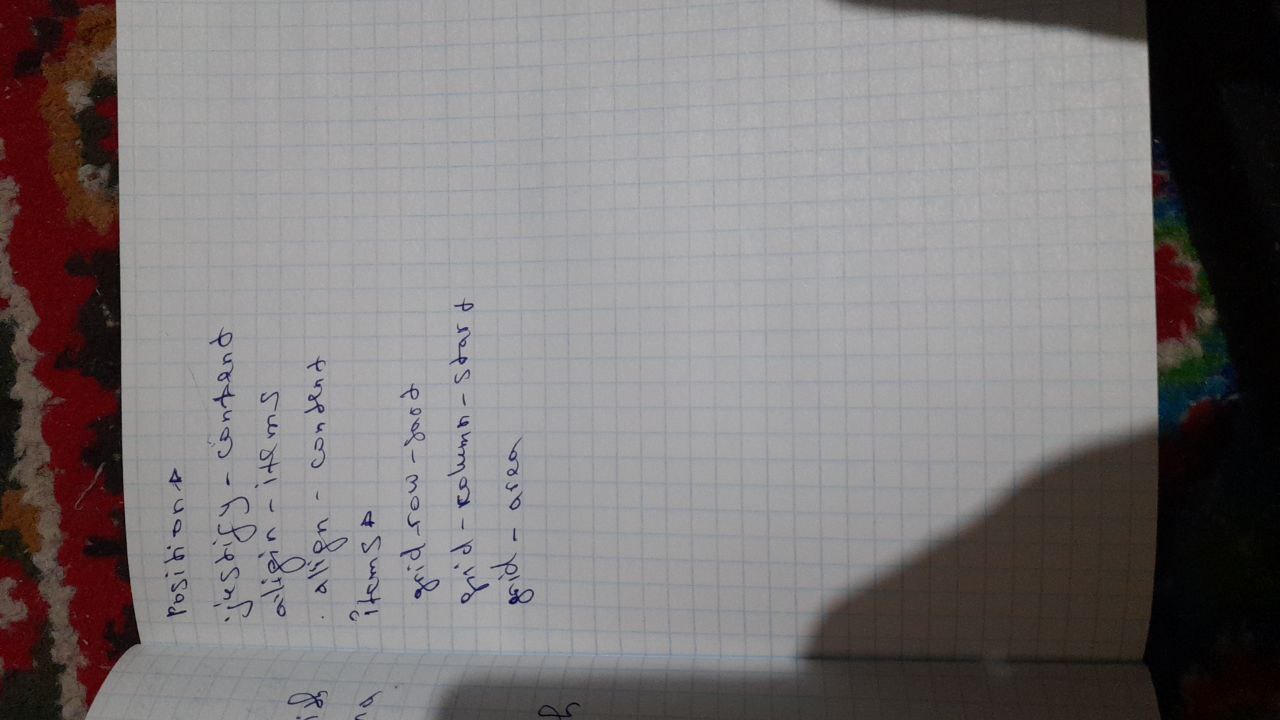 position
justify-content
aligin-items
align-content
items
grid-row-
grid-kolumn-start
grid-area